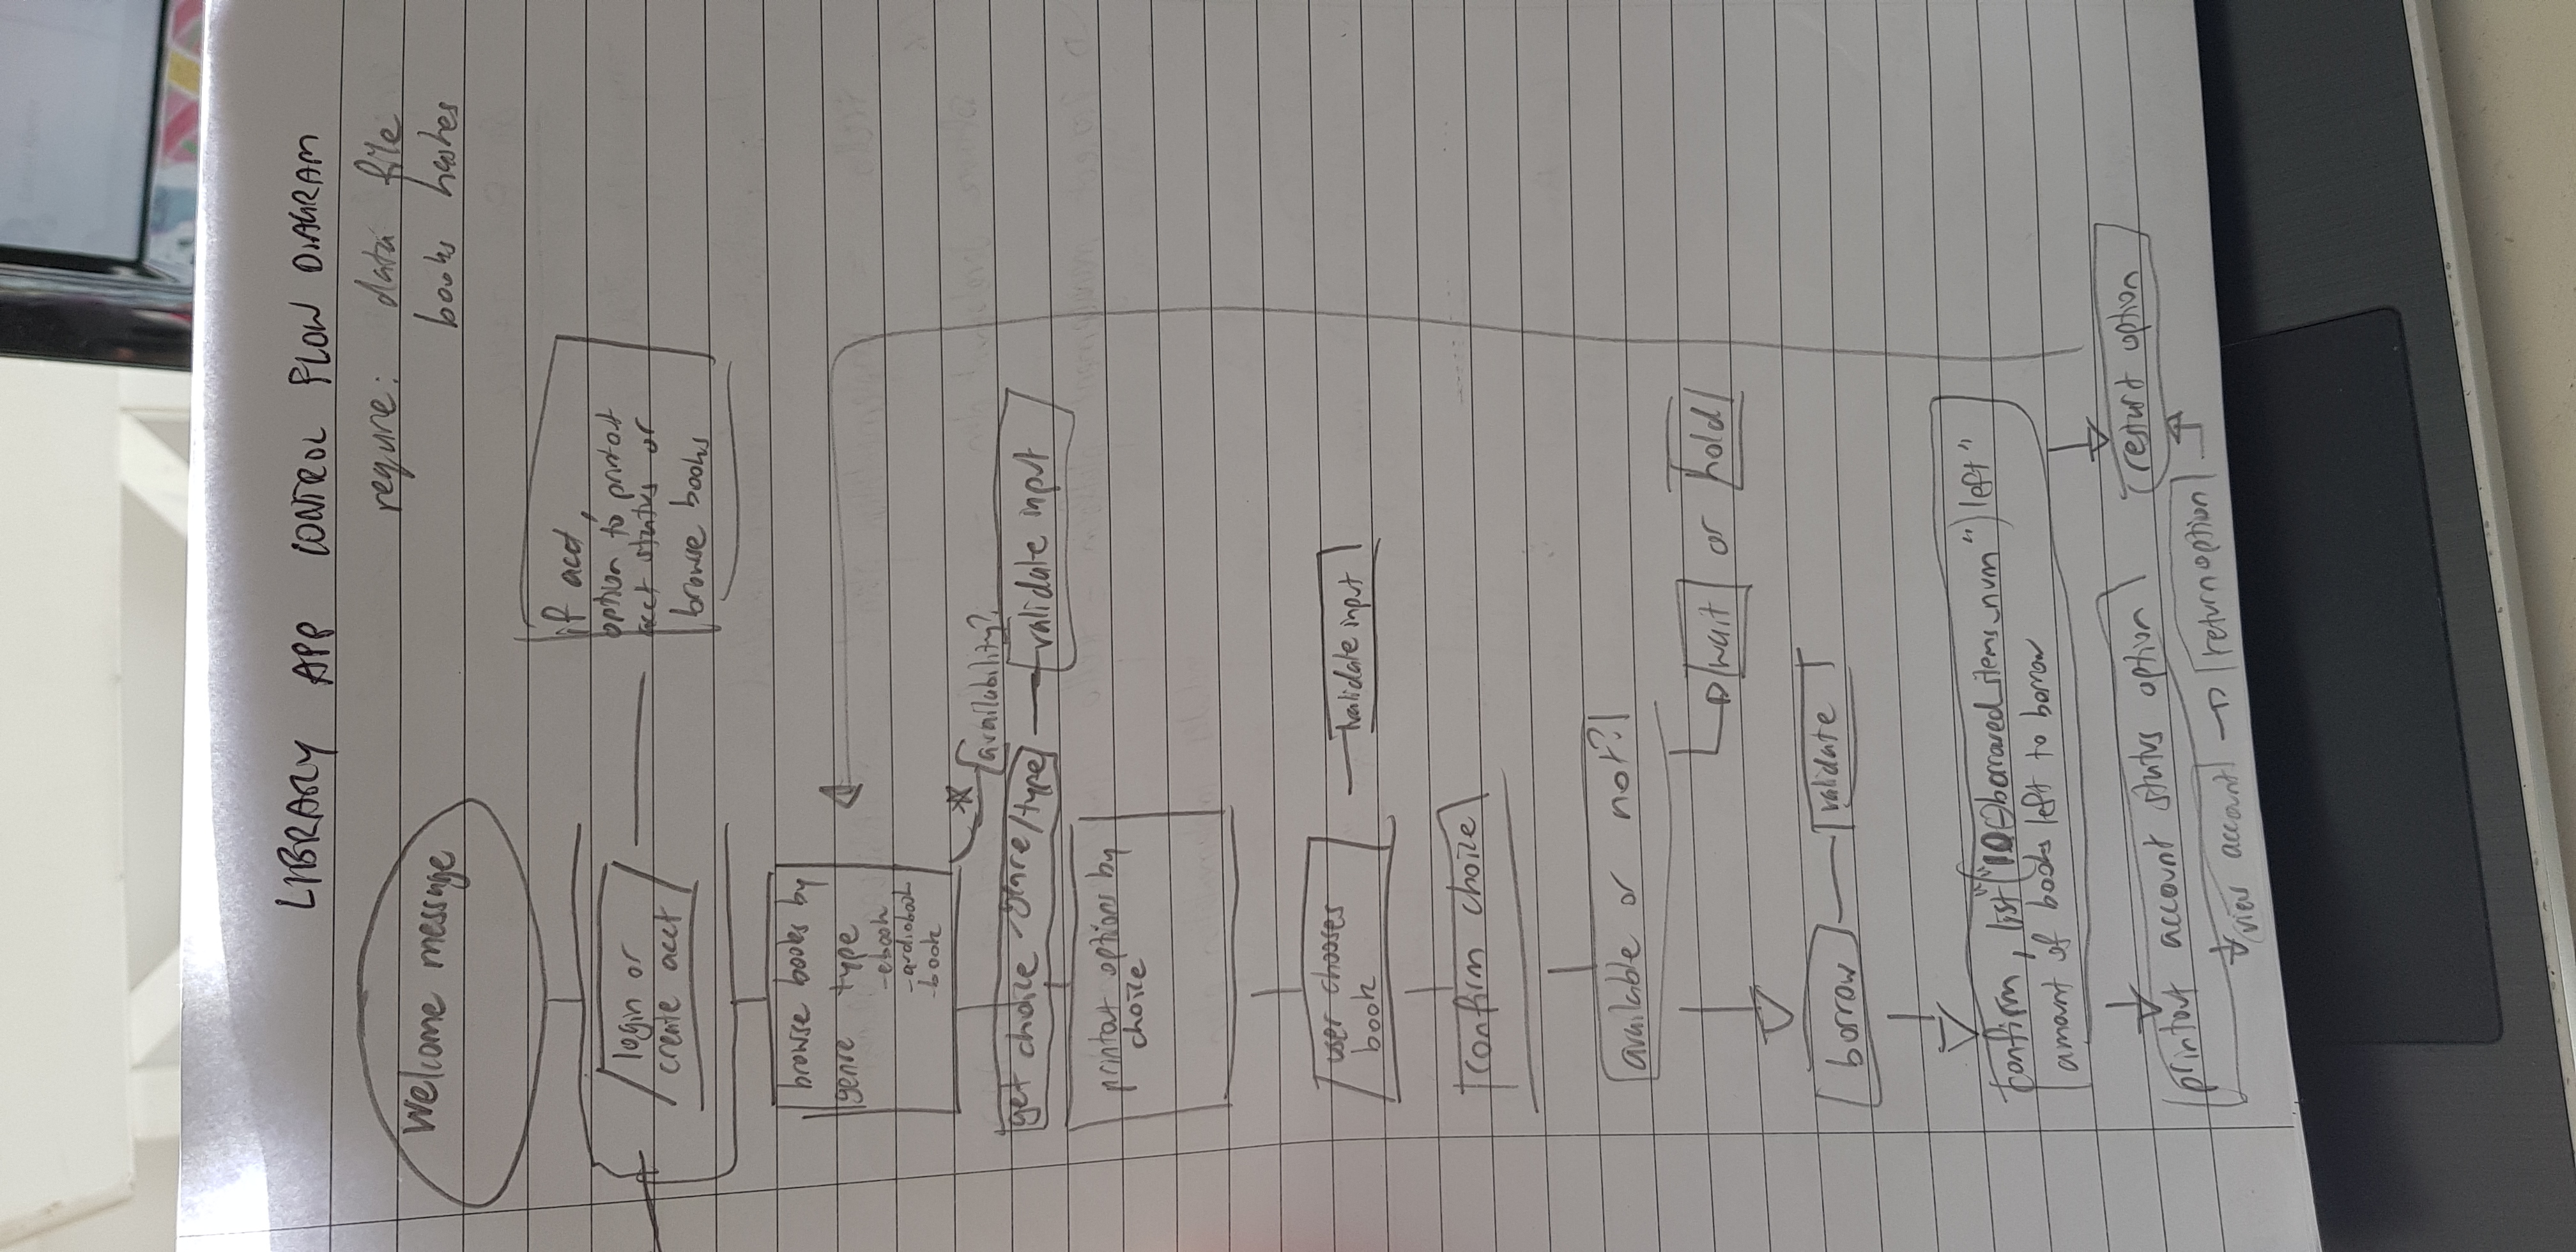 LIBRARY APP CONTROL FLOW DIAGRAM
require: data file
books hashes
Welcome message
login or
create acct
if acct,
option to printout
acct status or
browse books
browse books by
genre type
-ebook
-audiobook
-book
* availability?
get choice genre/type
validate input
printout options by
choice
user chooses
book
validate input
confirm choice
available or not?
wait or hold
borrow
validate
confirm, list "(10-borrowed_items_num") left"
amount of books left to borrow
printout account status option
restart option
view account
return option